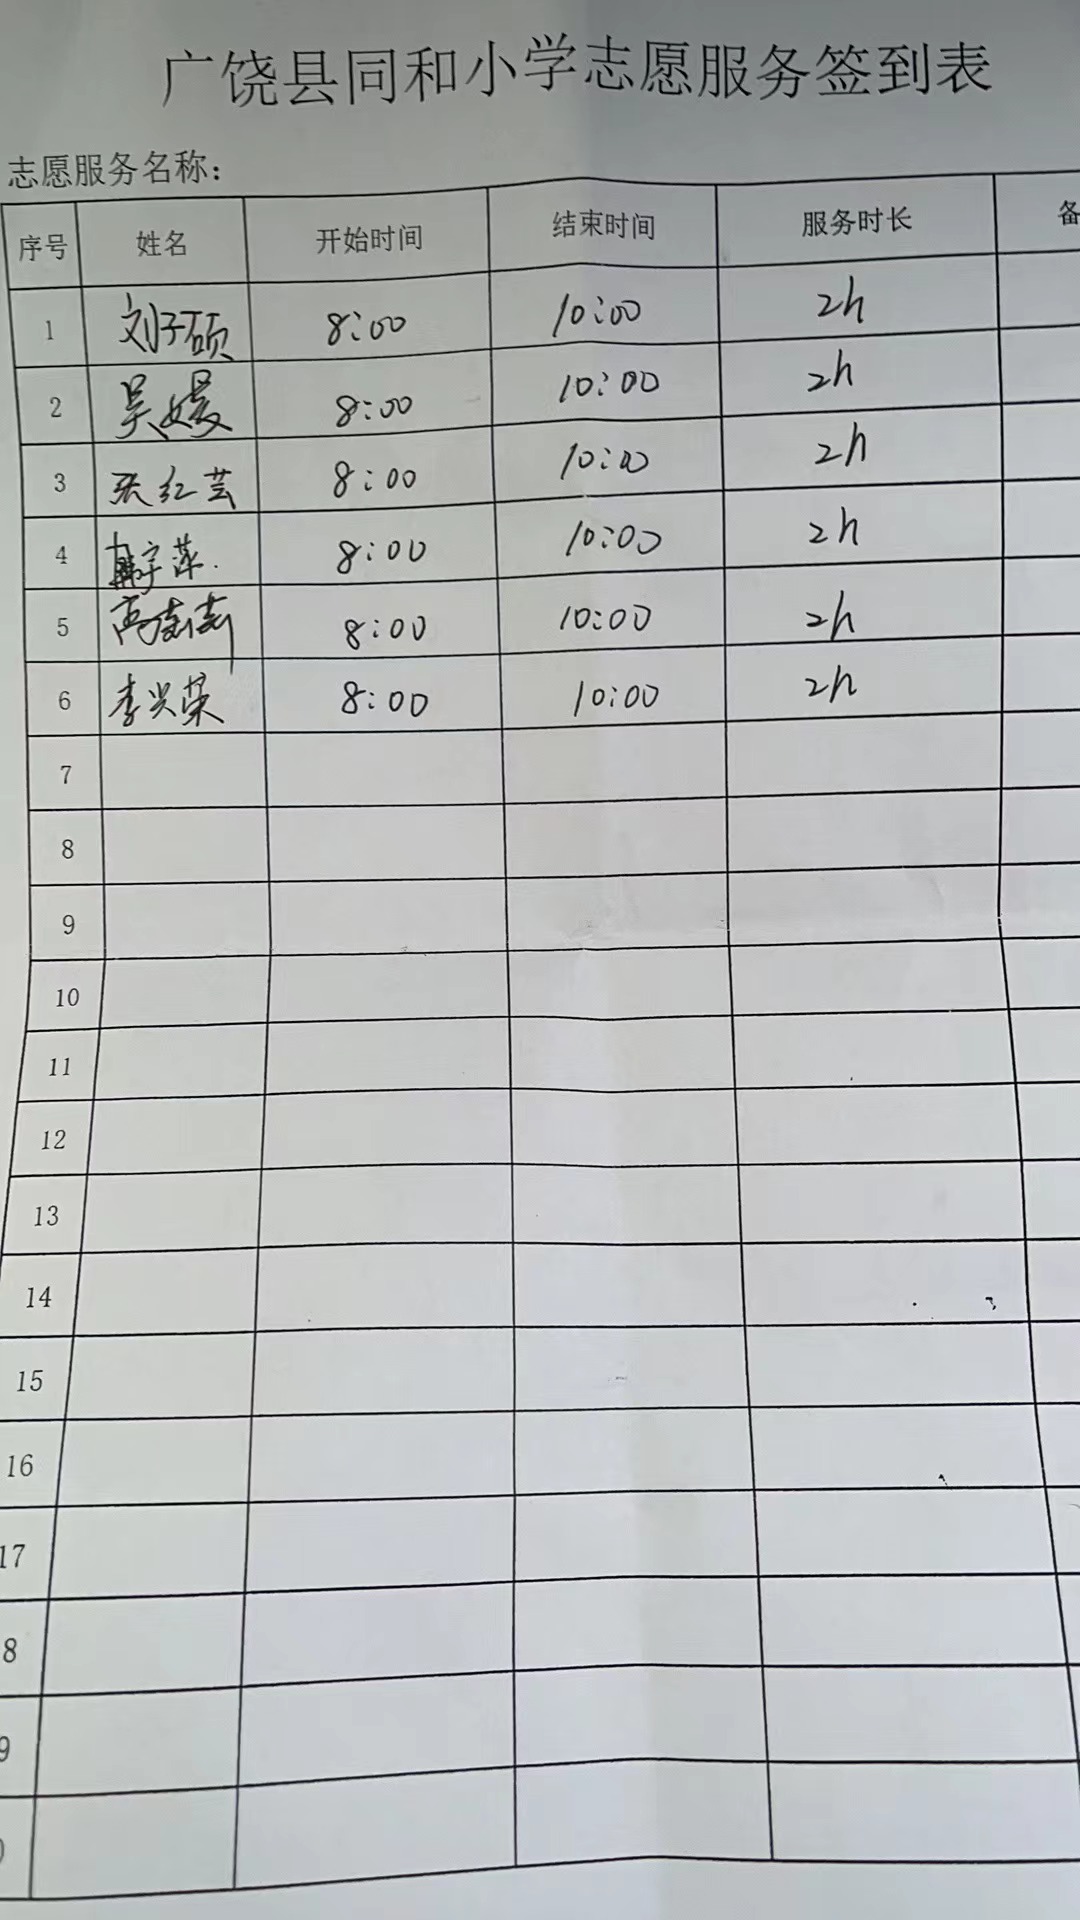 广饶县同和小学志愿服务签到表
志愿服务名称：
序号 姓名 开始时间 结束时间 服务时长 备
1 刘子硕 8:00 10:00 2h
2 吴媛 8:00 10:00 2h
3 张红芸 8:00 10:00 2h
4 韩宇萍. 8:00 10:00 2h
5 高 8:00 10:00 2h
6 李兴荣 8:00 10:00 2h
7
8
9
10
11
12
13
14
15
16
17
8
9